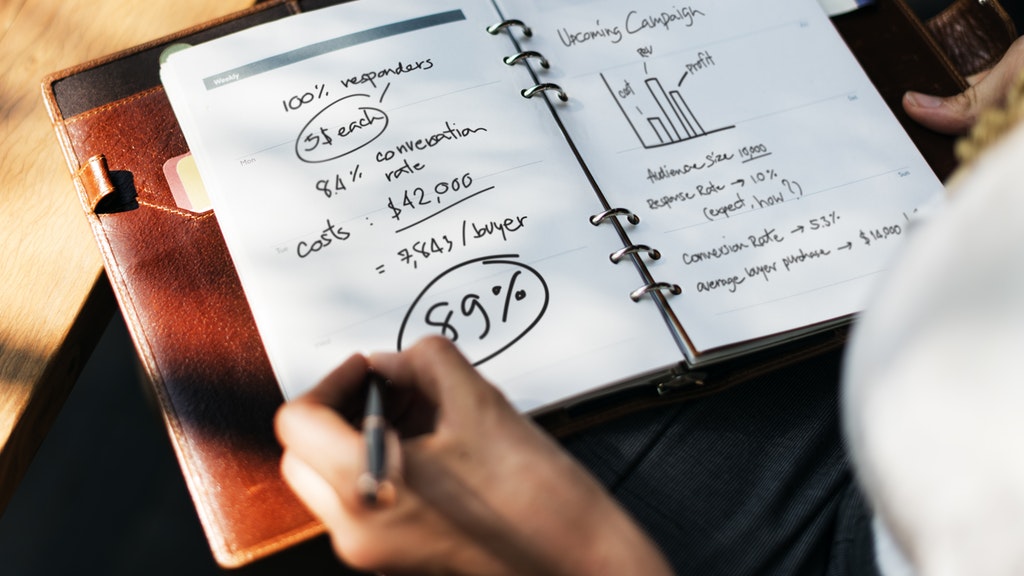 Weekly
100% responders
5$ each
Mon
8.4% conversation
rate
costs : $42,000
= 7,843/buyer
89%
Upcoming Campaign
cost
profit
Audience size 10,000
Response Rate → 10%
(expect, how?)
Conversion Rate → 5.3%
average buyer purchase → $14,000